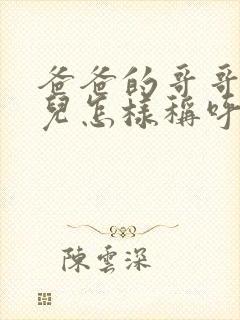 爸爸的哥哥
兒怎樣稱呼
陳雲深